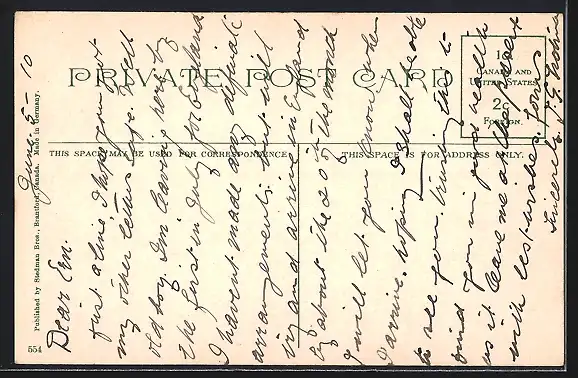 PRIVATE POST CARD
THIS SPACE MAY BE USED FOR CORRESPONDENCE.
THIS SPACE IS FOR ADDRESS ONLY.
1c
CANADA AND
UNITED STATES
2c
FOREIGN.
Published by Stedman Bros., Brantford, Canada. Made in Germany.
554
June 5 - 10
Dear Ern.
Just a line I hope you got
my other letters safe. Well
old boy. I'm leaving here by
the first in July for England
I havent made any definate
arrangements but will
try and arrive in England
by about the 20th of the month
I will let you know when
I arrive. hoping I shall be able
to see you. Trusting this to
find you in good health
as it leaves me at the present
with best wishes. Yours
Sincerely